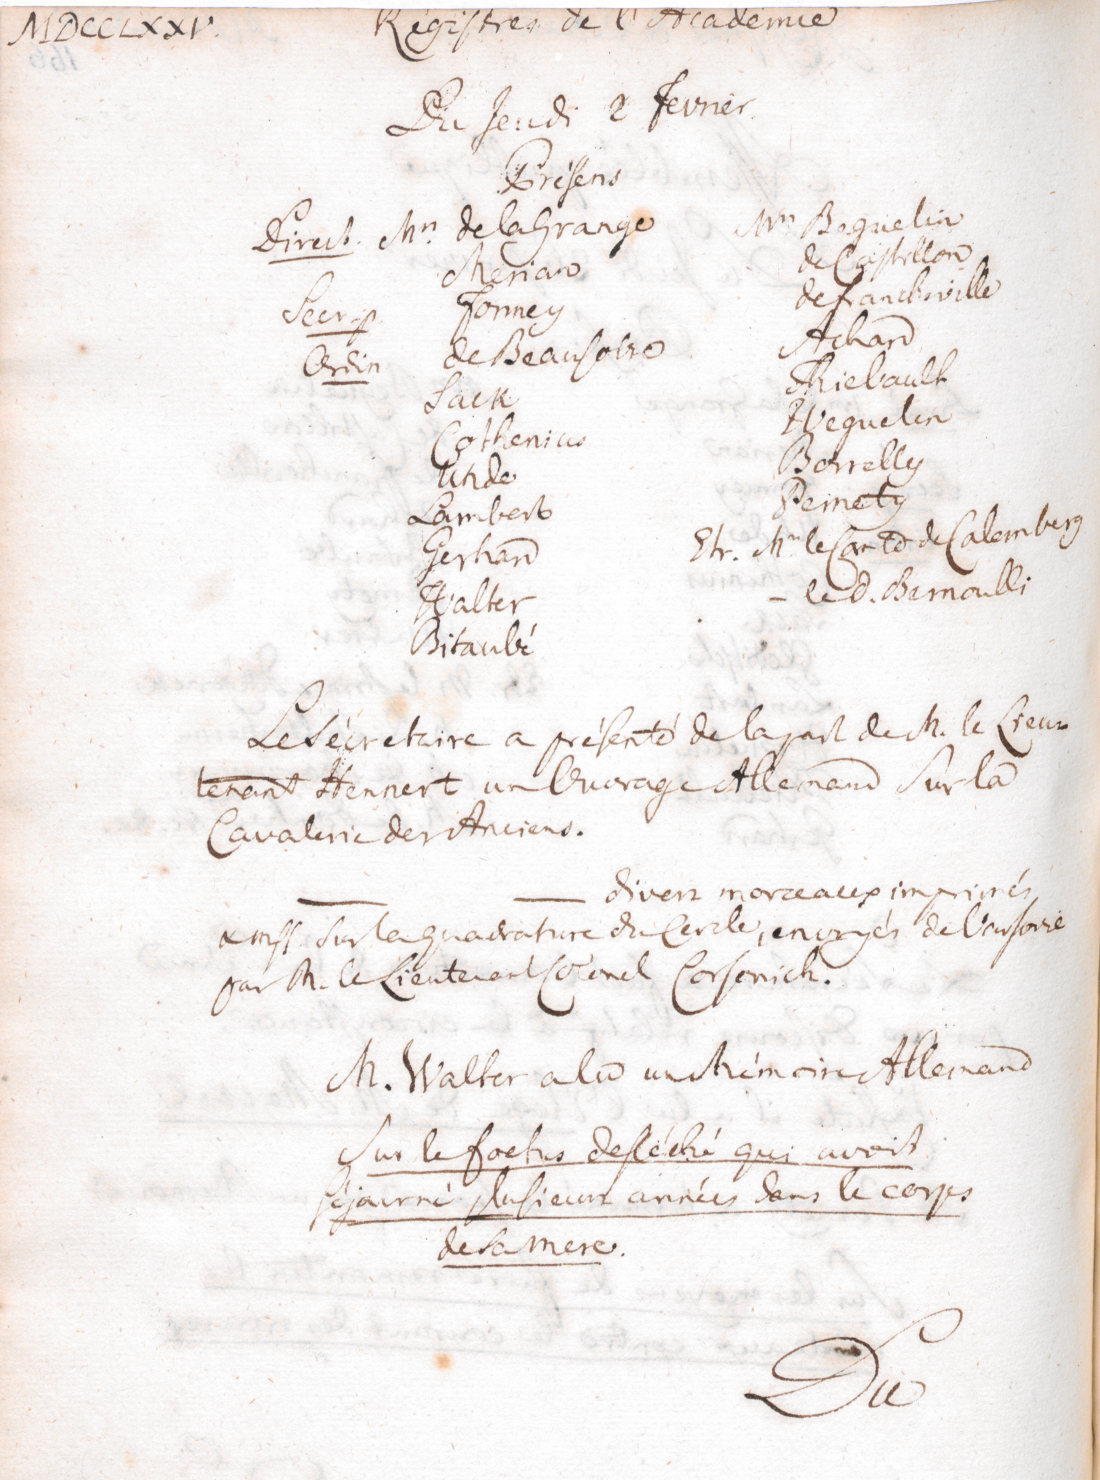 MDCCLXXV.
Régistres de l'Academie
Du Jeudi 2 Fevrier.
Présens
Direct. Mrs de la Grange
Merian
Secr. p. Formey
Ordin de Beausobre
Sack
Cothenius
Uhde
Lambert
Gerhard
Walter
Bitaubé
Mrs Beguelin
de Castillon
de Francheville
Achard
Thiebault
Weguelin
Borrelly
Pernety
Etr. Mr le Comte de Calemberg
– le d. Bernoulli
Le Sécretaire a présenté de la part de M. le Lieu-
tenant Hennert un Ouvrage Allemand sur la
Cavalerie des Anciens.
— — divers morceaux imprimés
& mss sur la quadrature du Cercle, envoyés de Varsovie
par M. le Lieutenant Colonel Corsonich.
M. Walter a lu un Mémoire Allemand
Sur le foetus desséché qui avoit
séjourné plusieurs années dans le corps
de sa mere.
Du